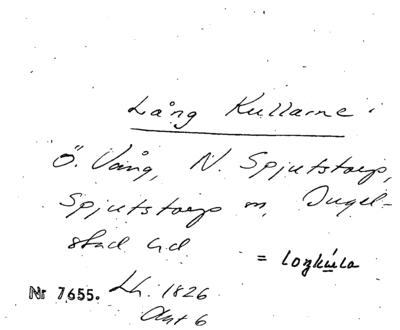 Lång Kullarne
Ö. Vång, N. Spjutstorp,
Spjutstorp sn, Ingel-
stad hd
= lozkúla
Nr 7655. Lh. 1826
Akt 6